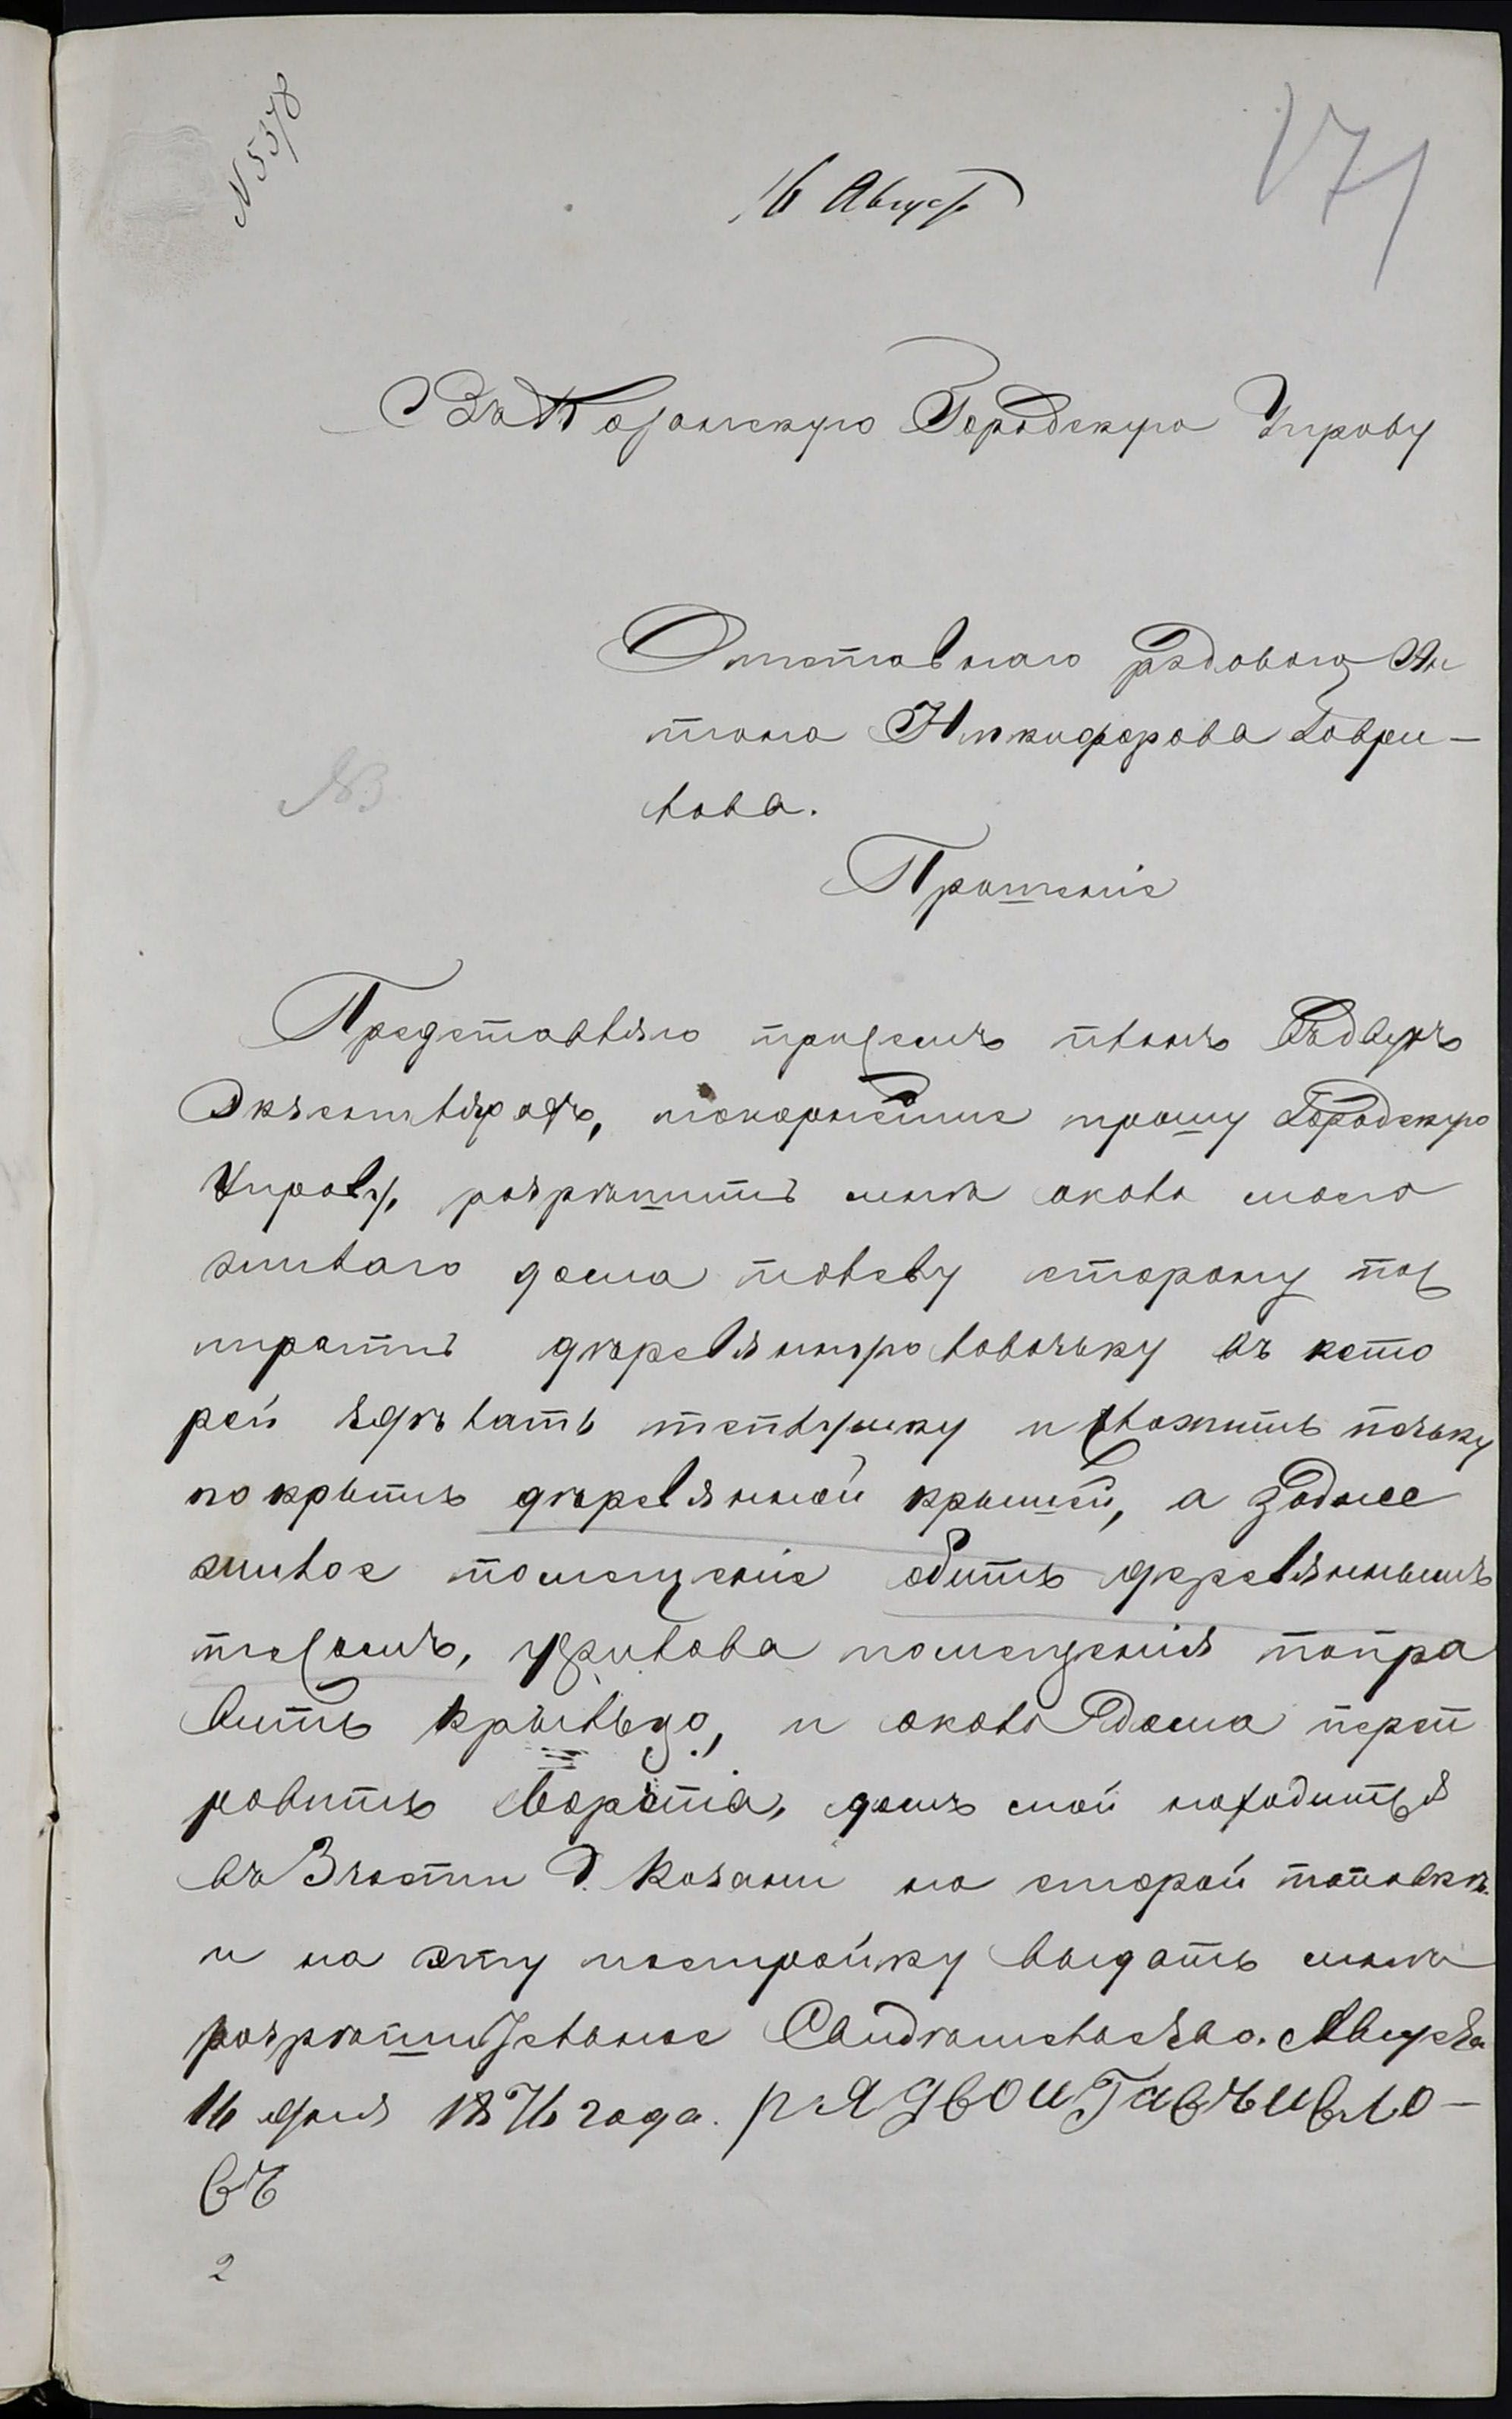 N 5378
16 Август
171
Въ Казанскую Городскую Управу
Отставнаго рядоваго Ан
тона Никифорова Гаври-
лова.
Прошеніе
Представляю присемъ планъ въ двухъ
Экземплярахъ, покорнейше прошу Городскую
Управу, разрѣшить мнѣ около моего
жилаго дома полеву сторону пос
троить дѣревянную лавочьку въ кото
рой здѣлать теплушку и сложить печьку
покрыть дѣревянной крышей, а заднее
жилое помещеніе обить деревянныемъ
тесомъ, ужилова помещенія попра
вить крыльцо, и около дома перепт
равить ворота, домъ мой находится
въ 3 части Г. Казани на второй поповкѣ
и на эту постройку выдать мнѣ
разрѣшительное Свидѣтельство. Августа
16 дня 1876 года. рядвои Гавъивло-
въ
2